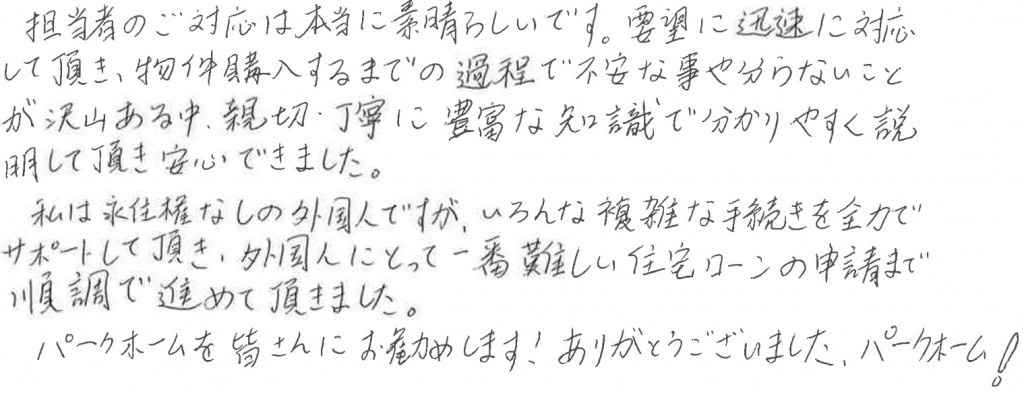 担当者のご対応は本当に素晴らしいです。要望に迅速に対応
して頂き、物件購入するまでの過程で不安な事や分らないこと
が沢山ある中、親切・丁寧に豊富な知識で分かりやすく説
明して頂き安心できました。
私は永住権なしの外国人ですが、いろんな複雑な手続きを全力で
サポートして頂き、外国人にとって一番難しい住宅ローンの申請まで
順調で進めて頂きました。
パークホームを皆さんにお勧めします！ありがとうございました、パークホーム！